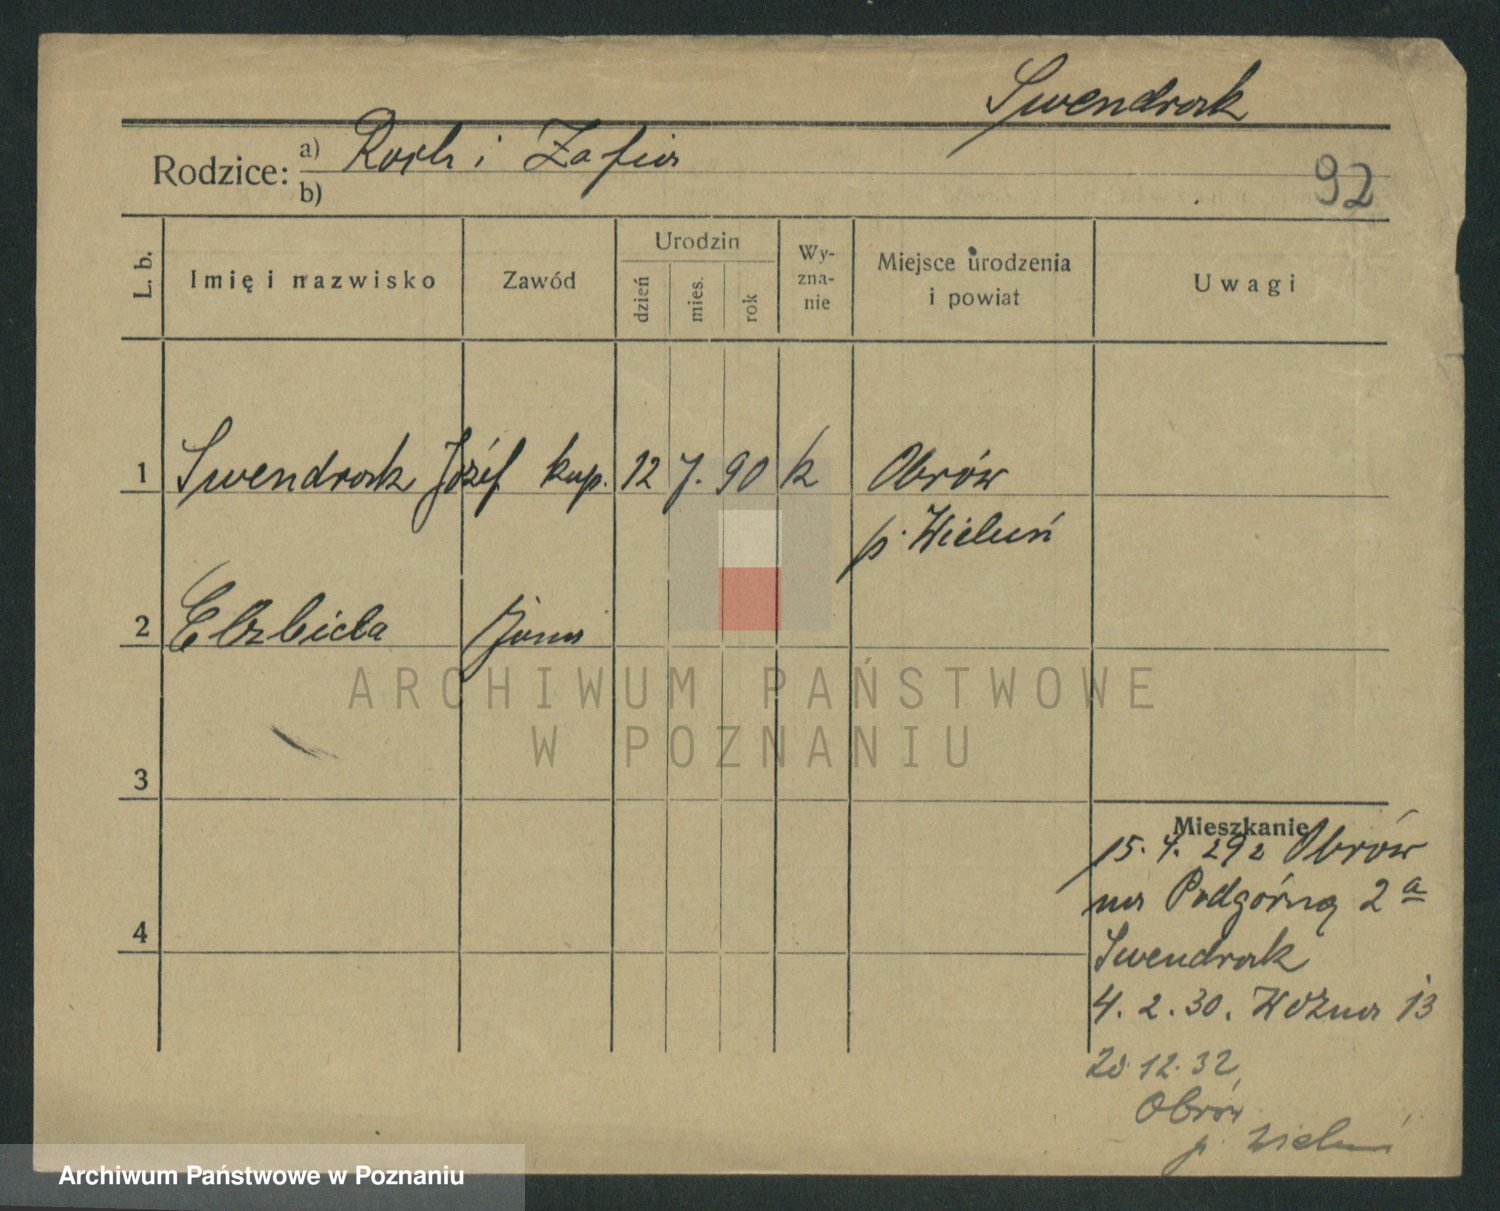 Swendrak
Rodzice: a) Roch i Zofia
b)
92
L. b.
Imię i nazwisko
Zawód
Urodzin
dzień
mies.
rok
Wy-
zna-
nie
Miejsce urodzenia
i powiat
Uwagi
1 Swendrak Józef kup. 12 7. 90 k Obrów
p. Wieluń
2 Elżbieta żona
ARCHIWUM PAŃSTWOWE
W POZNANIU
3
4
Mieszkanie
15. 4. 29 z Obrów
na Podgórną 2a
Swendrak
4. 2. 30. Woźna 13
12. 32
Obrów
p. Wieluń
Archiwum Państwowe w Poznaniu